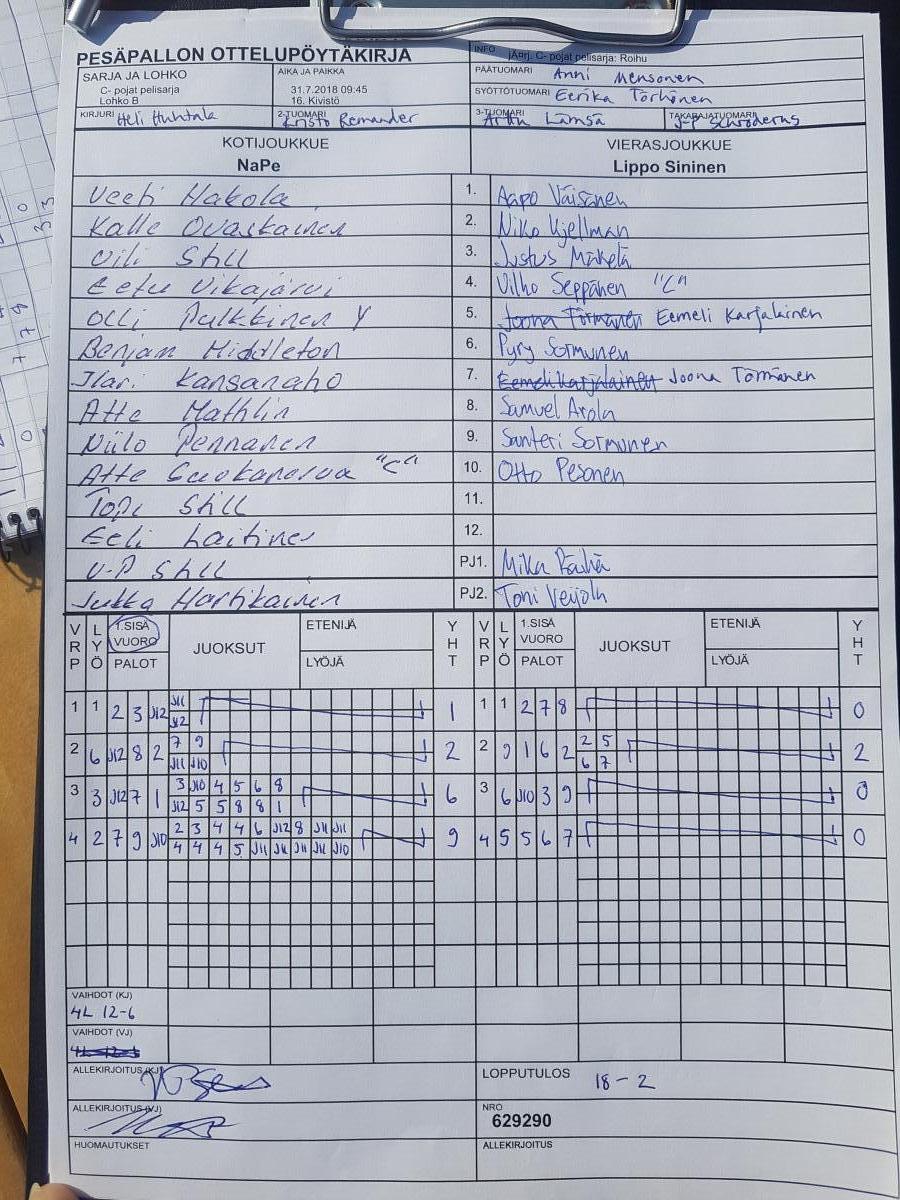 PESÄPALLON OTTELUPÖYTÄKIRJA
INFO jÄärj. C- pojat pelisarja: Roihu
SARJA JA LOHKO
C- pojat pelisarja
Lohko B
AIKA JA PAIKKA
31.7.2018 09:45
16. Kivistö
PÄÄTUOMARI Anni Mensonen
SYÖTTÖTUOMARI Eerika Törhönen
KIRJURI Heli Huhtala
2-TUOMARI Remander
3-TUOMARI Lämsä
TAKARAJATUOMARI J-P Schroderus
KOTIJOUKKUE
NaPe
VIERASJOUKKUE
Lippo Sininen
Veeti Hakola 1. Aapo Väisänen
Kalle Ovaskainen 2. Niko Kjellman
Vili Still 3. Justus Mäkelä
Eetu Vikajärvi 4. Vilho Seppänen "C"
Olli Pulkkinen Y 5. Joona Törmänen Eemeli Karjalainen
Benjam Middleton 6. Pyry Sormunen
Ilari Kansanaho 7. Eemeli Karjalainen Joona Törmänen
Atte Mathlin 8. Samuel Arola
Niilo Pennanen 9. Santeri Sormunen
Atte "C" 10. Otto Pesonen
Topi Still 11.
Eeli Laitinen 12.
V-P Still PJ1. Mika
Jukka Hartikainen PJ2. Toni Veijola
VRP LYÖ 1.SISÄ VUORO PALOT JUOKSUT ETENIJÄ LYÖJÄ YHT VRP LYÖ 1.SISÄ VUORO PALOT JUOKSUT ETENIJÄ LYÖJÄ YHT
1 1 2 3 J12 J11 1 1 1 2 7 8 0
J12
2 6 J12 8 2 7 9 2 2 9 1 6 2 2 5 2
J11 J10 6 7
3 3 J12 7 1 3 J10 4 5 6 8 6 3 6 J10 3 9 0
J12 5 5 8 8 1
4 2 7 9 J10 2 3 4 4 6 J12 8 J11 J11 9 4 5 5 6 7 0
4 4 4 5 J11 J11 J11 J11 J10
VAIHDOT (KJ)
4L 12-6
VAIHDOT (VJ)
ALLEKIRJOITUS (KJ)
LOPPUTULOS 18-2
ALLEKIRJOITUS (VJ)
NRO
629290
HUOMAUTUKSET
ALLEKIRJOITUS